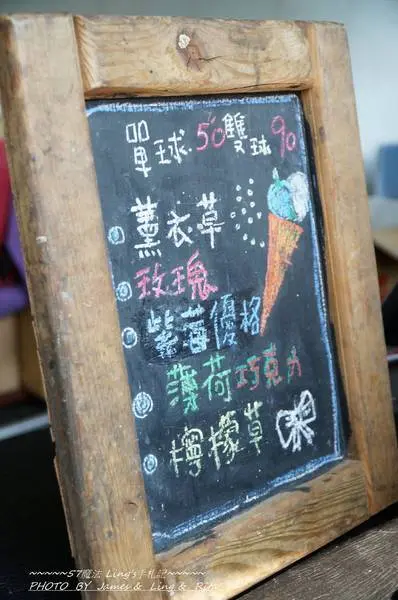 單球.50 雙球90
薰衣草
玫瑰
紫莓優格
薄荷巧克力
檸檬草
~~~~~57魔法 Ling's手札記~~~~~
PHOTO BY James & Ling & Rin